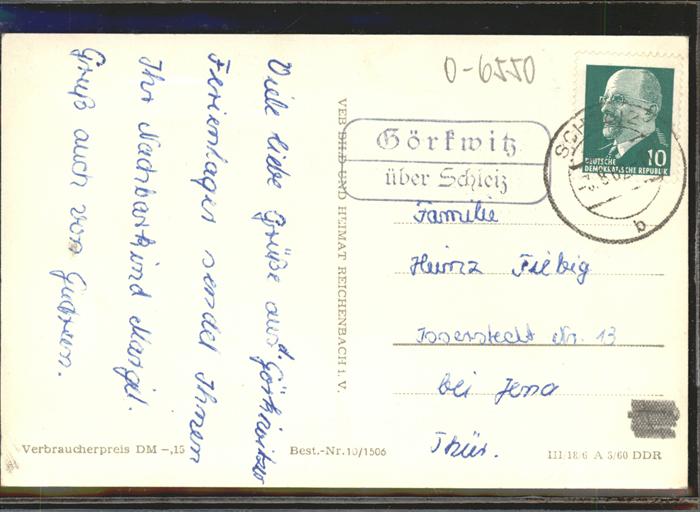 Viele liebe Grüße aus d. Görkwitzer
Ferienlager sendet Ihnen
Ihr Nachbarkind Margit.
Gruß auch von Gudrun.
O-6550
Görkwitz
über Schleiz
DEUTSCHE
DEMOKRATISCHE REPUBLIK
10
SCH
b
VEB BILD UND HEIMAT REICHENBACH i. V.
Familie
Heinz Fiebig
Isserstedt Nr. 13
bei Jena
Thür.
Verbraucherpreis DM -,15
Best.-Nr. 10/1506
III/18/6 A 5/60 DDR